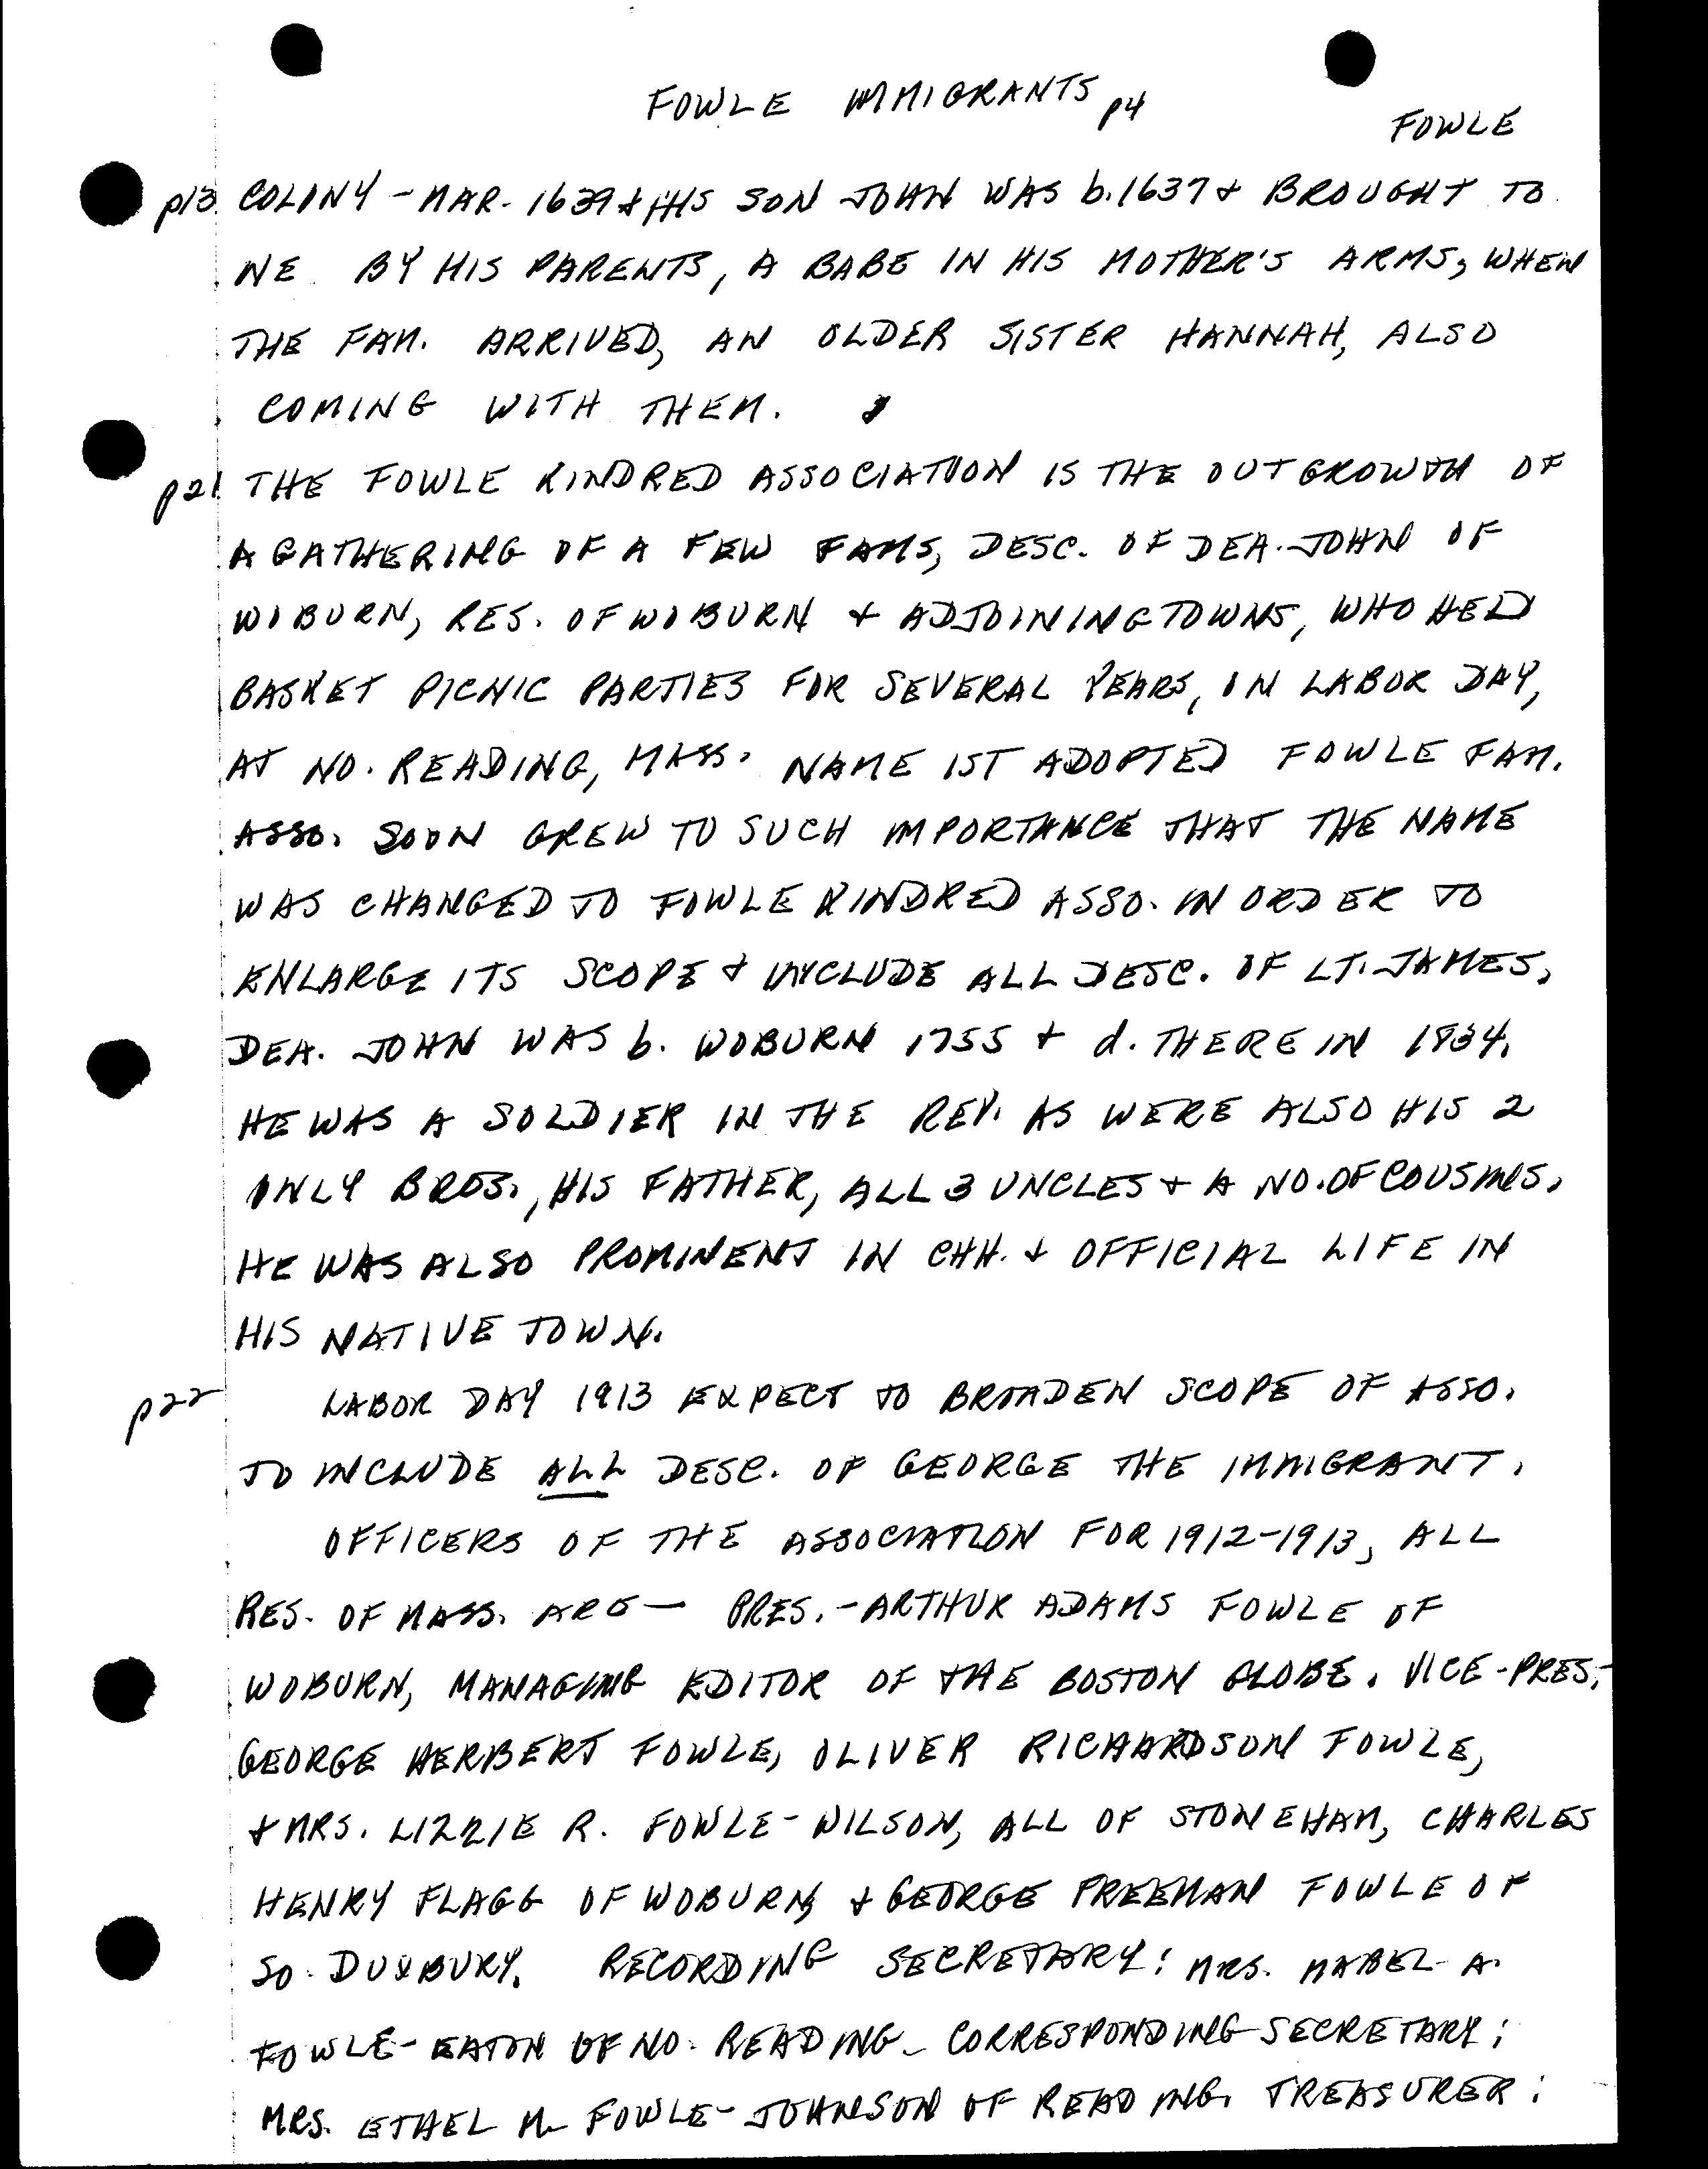 FOWLE IMMIGRANTS p4
FOWLE
p13 COLONY - MAR. 1639 & HIS SON JOHN WAS b. 1637 & BROUGHT TO
NE BY HIS PARENTS, A BABE IN HIS MOTHER'S ARMS, WHEN
THE FAM. ARRIVED, AN OLDER SISTER HANNAH, ALSO
COMING WITH THEM.
p21 THE FOWLE KINDRED ASSOCIATION IS THE OUTGROWTH OF
A GATHERING OF A FEW FAMS, DESC. OF DEA. JOHN OF
WOBURN, RES. OF WOBURN & ADJOINING TOWNS, WHO HELD
BASKET PICNIC PARTIES FOR SEVERAL YEARS, ON LABOR DAY,
AT NO. READING, MASS. NAME 1ST ADOPTED FOWLE FAM.
ASSO. SOON GREW TO SUCH IMPORTANCE THAT THE NAME
WAS CHANGED TO FOWLE KINDRED ASSO. IN ORDER TO
ENLARGE ITS SCOPE & INCLUDE ALL DESC. OF LT. JAMES.
DEA. JOHN WAS b. WOBURN 1755 & d. THERE IN 1834.
HE WAS A SOLDIER IN THE REV. AS WERE ALSO HIS 2
ONLY BROS., HIS FATHER, ALL 3 UNCLES & A NO. OF COUSINS.
HE WAS ALSO PROMINENT IN CHH. & OFFICIAL LIFE IN
HIS NATIVE TOWN.
p22 LABOR DAY 1913 EXPECT TO BROADEN SCOPE OF ASSO.
TO INCLUDE ALL DESC. OF GEORGE THE IMMIGRANT.
OFFICERS OF THE ASSOCIATION FOR 1912-1913, ALL
RES. OF MASS. ARE - PRES. - ARTHUR ADAMS FOWLE OF
WOBURN, MANAGING EDITOR OF THE BOSTON GLOBE. VICE-PRES.-
GEORGE HERBERT FOWLE, OLIVER RICHARDSON FOWLE,
& MRS. LIZZIE R. FOWLE-WILSON, ALL OF STONEHAM, CHARLES
HENRY FLAGG OF WOBURN, & GEORGE FREEMAN FOWLE OF
SO. DUXBURY. RECORDING SECRETARY: MRS. MABEL A.
FOWLE-EATON OF NO. READING. CORRESPONDING SECRETARY:
MRS. ETHEL M. FOWLE-JOHNSON OF READING. TREASURER: